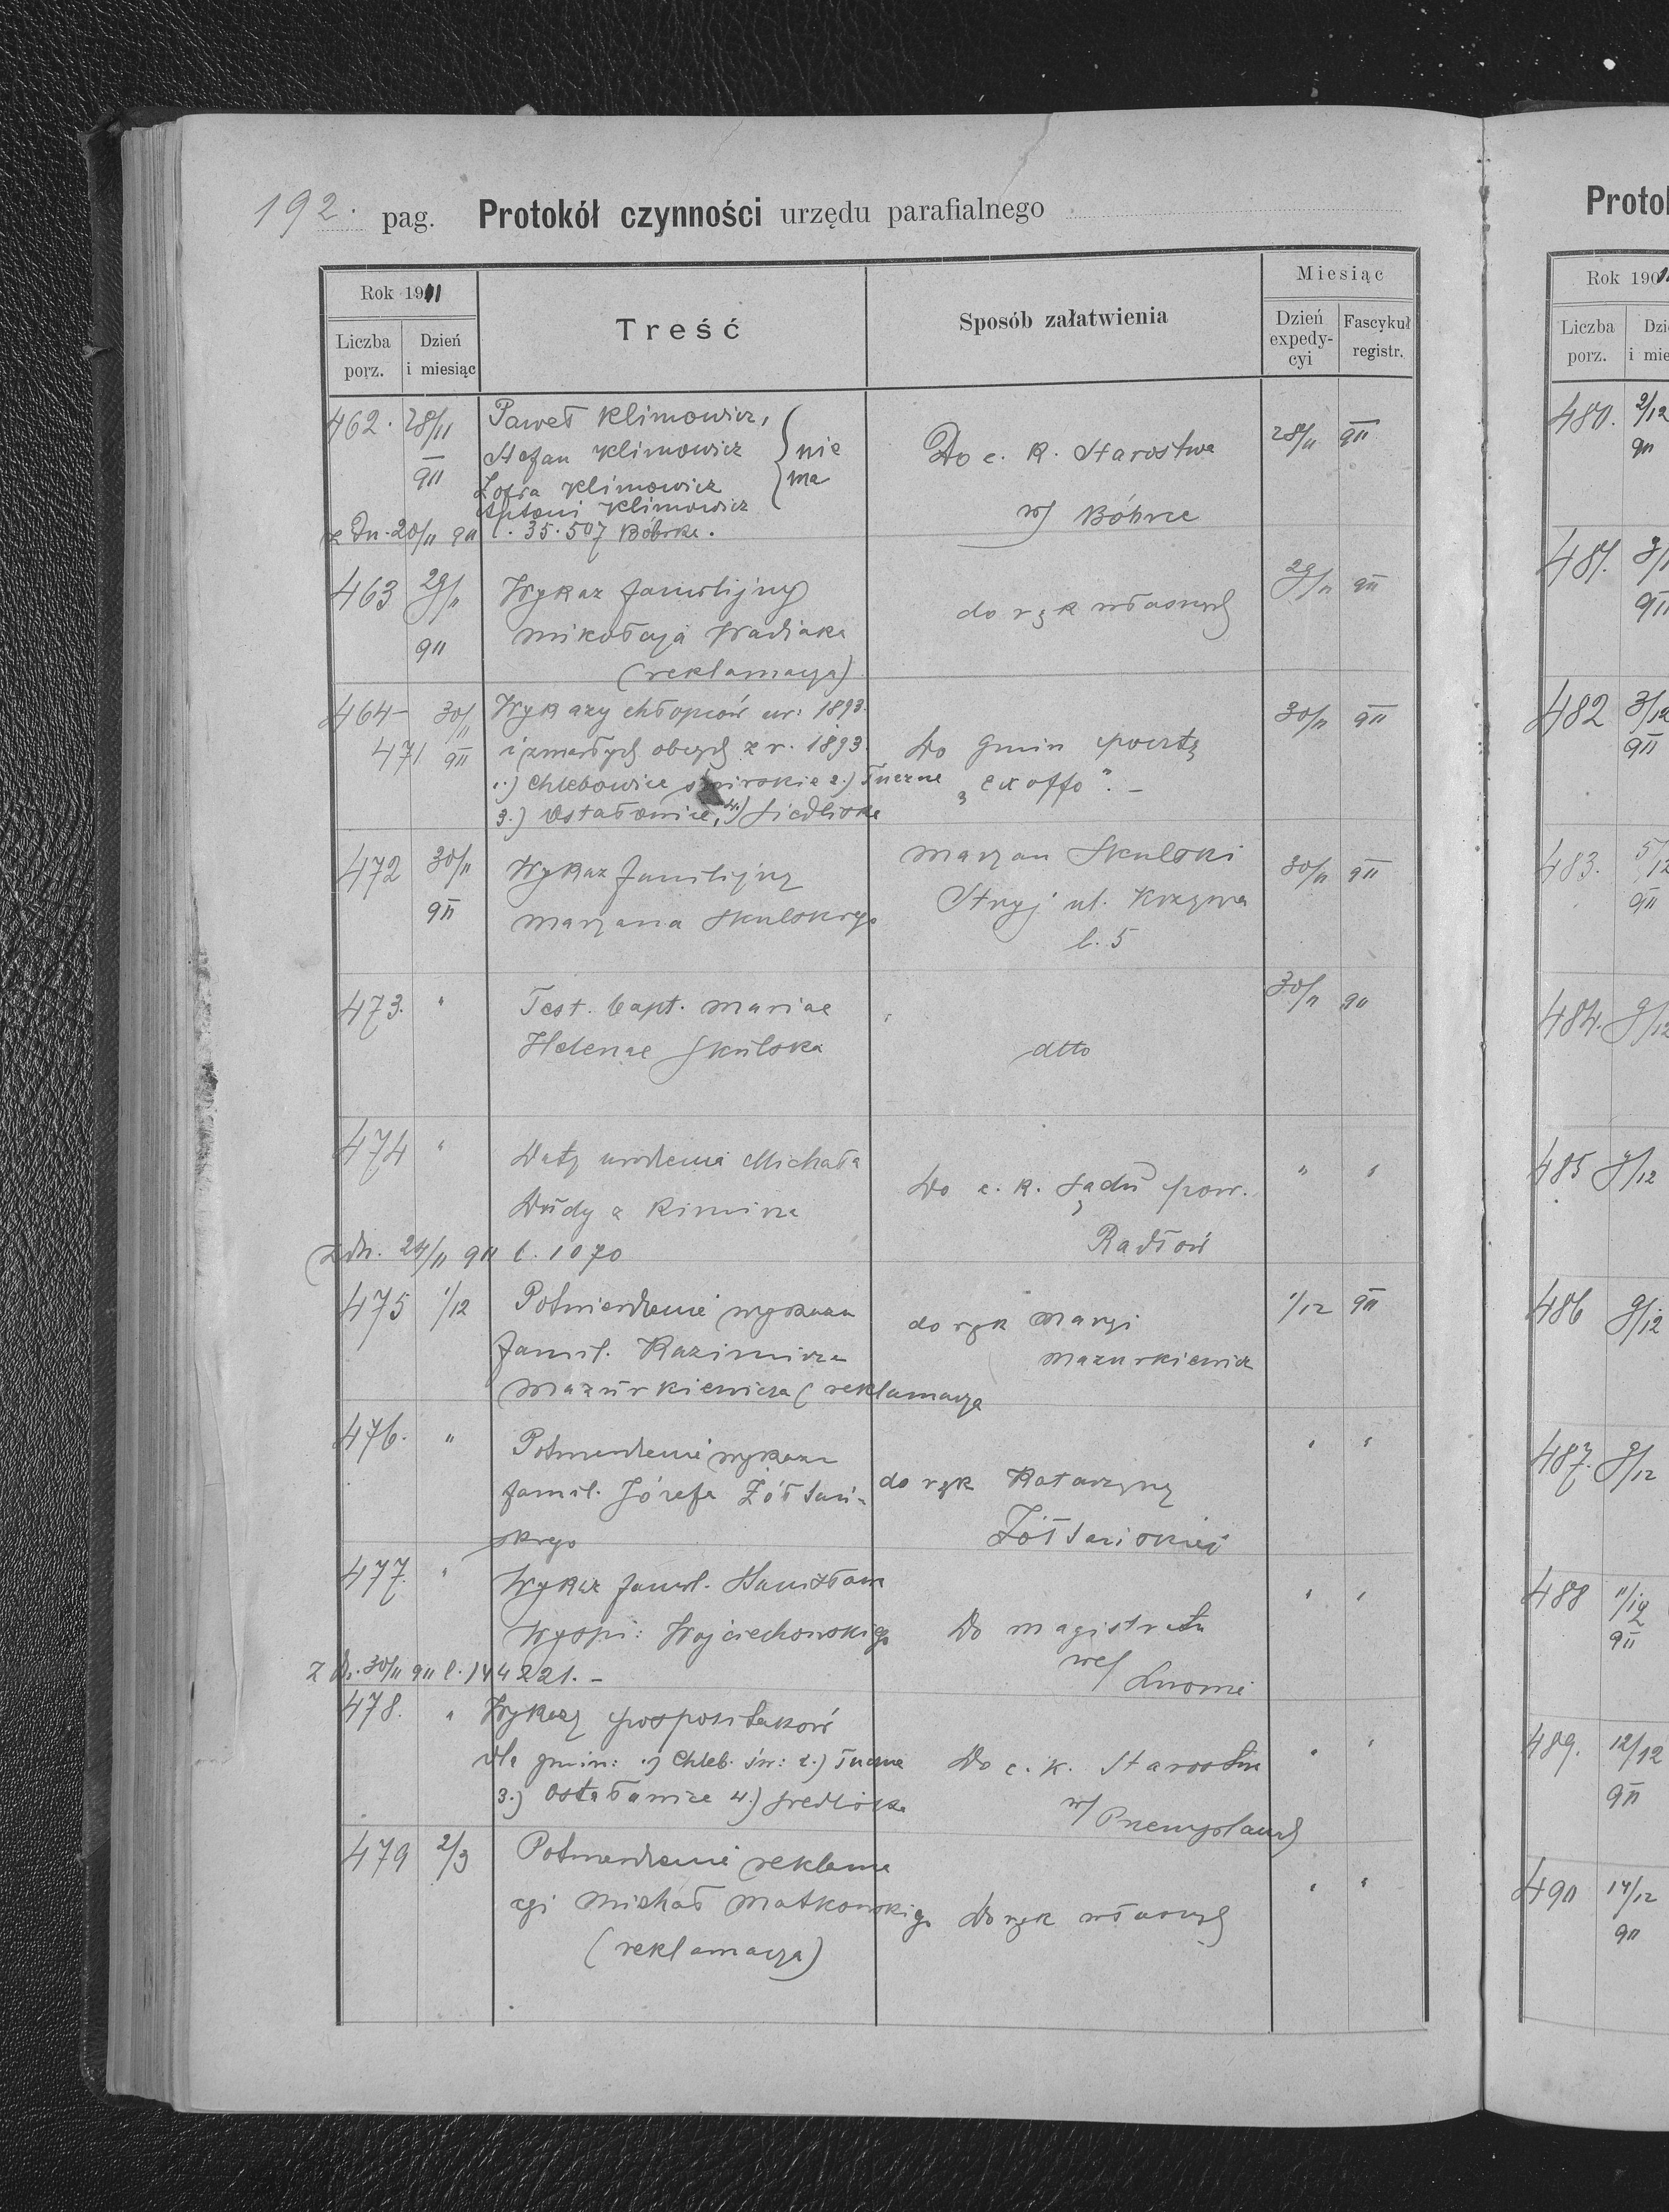 192. pag. Protokół czynności urzędu parafialnego
Rok 1911
Treść
Sposób załatwienia
Miesiąc
Liczba porz.
Dzień i miesiąc
Dzień expedycyi
Fascykuł registr.
462. 28/11 911
Paweł Klimowicz,
Stefan Klimowicz
Zofia Klimowicz
Antoni Klimowicz
nie ma
z Dn. 20/11 911 l. 35.507 Bóbrka.
Do c. k. Starostwa
w/ Bóbrce
28/11 911
463 29/11 911
Wykaz familijny
Mikołaja
(reklamacya)
do rąk własnych
29/11 911
464-471 30/11 911
Wykazy chłopców ur: 1893.
i zmarłych obcych z r. 1893.
1.) Chlebowice świrskie 2.) Tuczne
3.) Ostałowice, 4.) Siedliska
Do gmin pocztą
"ex offo". –
30/11 911
472 30/11 911
Wykaz familijny
Maryana Skulskiego
Maryan Skulski
Stryj ul. Krzywa
l. 5
30/11 911
473. "
Test. bapt. Mariae
Helenae Skulska
dtto
30/11 911
474 "
Daty urodzenia Michała
Dudy z
z dn. 24/11 911 l. 1070
Do c. k. Sądu pow.
Radłów
" "
475 1/12
Potwierdzenie wykazu
famil. Kazimirza
Mazurkiewicza (reklamacya
do rąk Maryi
Mazurkiewicz
1/12 911
476. "
Potwierdzenie wykazu
famil. Józefa Żółtań-
skiego
do rąk Katarzyny
Żółtańskiej
" "
477. "
Wykaz famil. Stanisława
Wojciechowskiego
z Dn. 30/11 911 l. 144221. –
Do magistratu
we/ Lwowie
" "
478. "
Wykazy pospolitaków
dla gmin: 1.) Chleb. św: 2.) Tuczne
3.) Ostałowice 4.) Siedliska
Do c. k. Starostwa
w/ Przemyślanach
" "
479 2/3
Potwierdzenie reklama
cyi Michał Matkowskiego
(reklamacya)
Do rąk własnych
" "
Protok
Rok 1901
Liczba porz.
Dzi
i mie
480. 2/12 911
481. 3/1 911
482 3/12 911
483. 5/12 911
484. 9/12
485 9/12
486 9/12
487. 9/12
488 11/12 911
489. 12/12 911
490 14/12 911